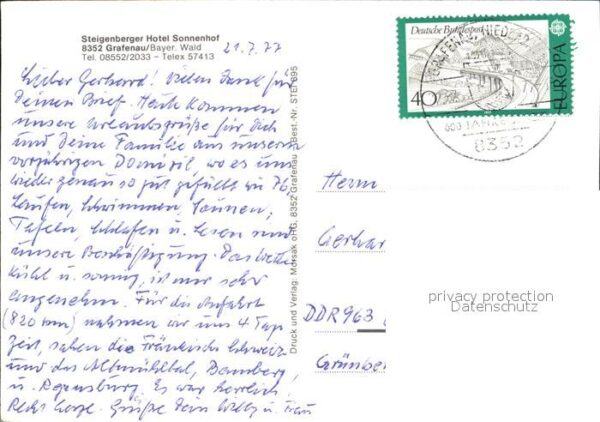 Steigenberger Hotel Sonnenhof
8352 Grafenau/Bayer. Wald
Tel. 08552/2033 – Telex 57413
21.7.77
Lieber Gerhard! Vielen Dank für
Deinen Brief. Heute kommen
unsere Urlaubsgrüße für Dich
und Deine Familie aus unserem
vorjährigen Domizil, wo es uns
wieder genau so gut gefällt wie 76
Laufen, Schwimmen, Saunen,
Tafeln, Schlafen u. Lesen sind
unsere Beschäftigung. Das Wetter
kühl u. sonnig, ist uns sehr
angenehm. Für die Anfahrt
(820 km) nahmen wir uns 4 Tage
Zeit, sahen die Fränkische Schweiz
und das Altmühltal, Bamberg,
u. Regensburg. Es war herrlich.
Recht herzl. Grüße Dein Willy u. Frau
Druck und Verlag: Morsak oHG, 8352 Grafenau Best.-Nr. STEI
Deutsche Bundespost
40
EUROPA
GRAFENAU
8352
Herrn
Gerhar
DDR 963
Grünber
privacy protection
Datenschutz